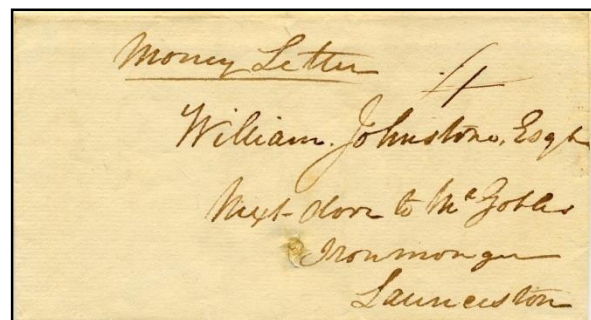 Money Letter 4
William Johnstone, Esqr
Next door to Mr
Ironmonger
Launceston